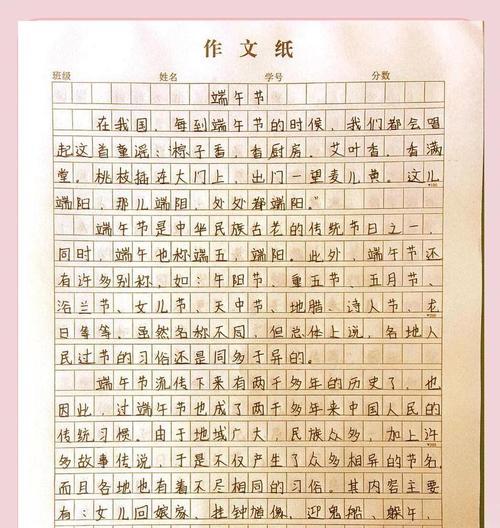 作文纸
班级 姓名 学号 分数
端午节
在我国,每到端午节的时候,我们都会唱
起这首童谣:“粽子香,香厨房。艾叶香,香满
堂。桃枝插在大门上,出门一望麦儿黄。这儿
端阳,那儿端阳,处处都端阳。”
端午节是中华民族古老的传统节日之一,
同时,端午也称端五,端阳。此外,端午节还
有许多别称,如:午日节、重五节、五月节、
浴兰节、女儿节、天中节、地腊、诗人节、龙
日等等。虽然名称不同,但总体上说,各地人
民过节的习俗还是同多于异的。
端午节流传下来有两千多年的历史了,也
因此,过端午节也成了两千多年来中国人民的
传统习惯。由于地域广大,民族众多,加上许
多故事传说,于是不仅产生了众多相异的节名,
而且各地也有着不尽相同的习俗。其内容主要
有:女儿回娘家,挂钟馗像,迎鬼船、躲午,